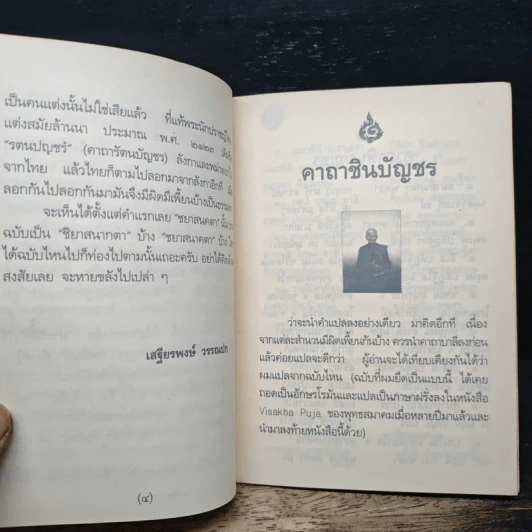 เป็นคนแต่งนั้นไม่ใช่เสียแล้ว ที่แท้พระนักปราชญ์
แต่งสมัยล้านนา ประมาณ พ.ศ. ๒๑๒๓
"รตนปญชร์" (คาถารัตนบัญชร) ลังกาและพม่า
จากไทย แล้วไทยก็ตามไปลอกมาจากลังกาอีกที
ลอกกันไปลอกกันมามันจึงมีผิดมีเพี้ยนบ้างเป็น
จะเห็นได้ตั้งแต่คำแรกเลย "ชยาสนคตา"
ฉบับเป็น "ชิยาสนากตา" บ้าง "ชยาสนาคตา" บ้าง
ได้ฉบับไหนไปก็ท่องไปตามนั้นเถอะครับ อย่าได้คิด
สงสัยเลย จะหายขลังไปเปล่า ๆ
เสฐียรพงษ์ วรรณปก
(๔)
คาถาชินบัญชร
ว่าจะนำคำแปลลงอย่างเดียว มาคิดอีกที เนื่อง
จากแต่ละสำนวนมีผิดเพี้ยนกันบ้าง ควรนำคาถาบาลีลงก่อน
แล้วค่อยแปลจะดีกว่า ผู้อ่านจะได้เทียบเคียงกันได้ว่า
ผมแปลจากฉบับไหน (ฉบับที่ผมยึดเป็นแบบนี้ ได้เคย
ถอดเป็นอักษรโรมันและแปลเป็นภาษาฝรั่งลงในหนังสือ
Visakha Puja ของพุทธสมาคมเมื่อหลายปีมาแล้วและ
นำมาลงท้ายหนังสือนี้ด้วย)